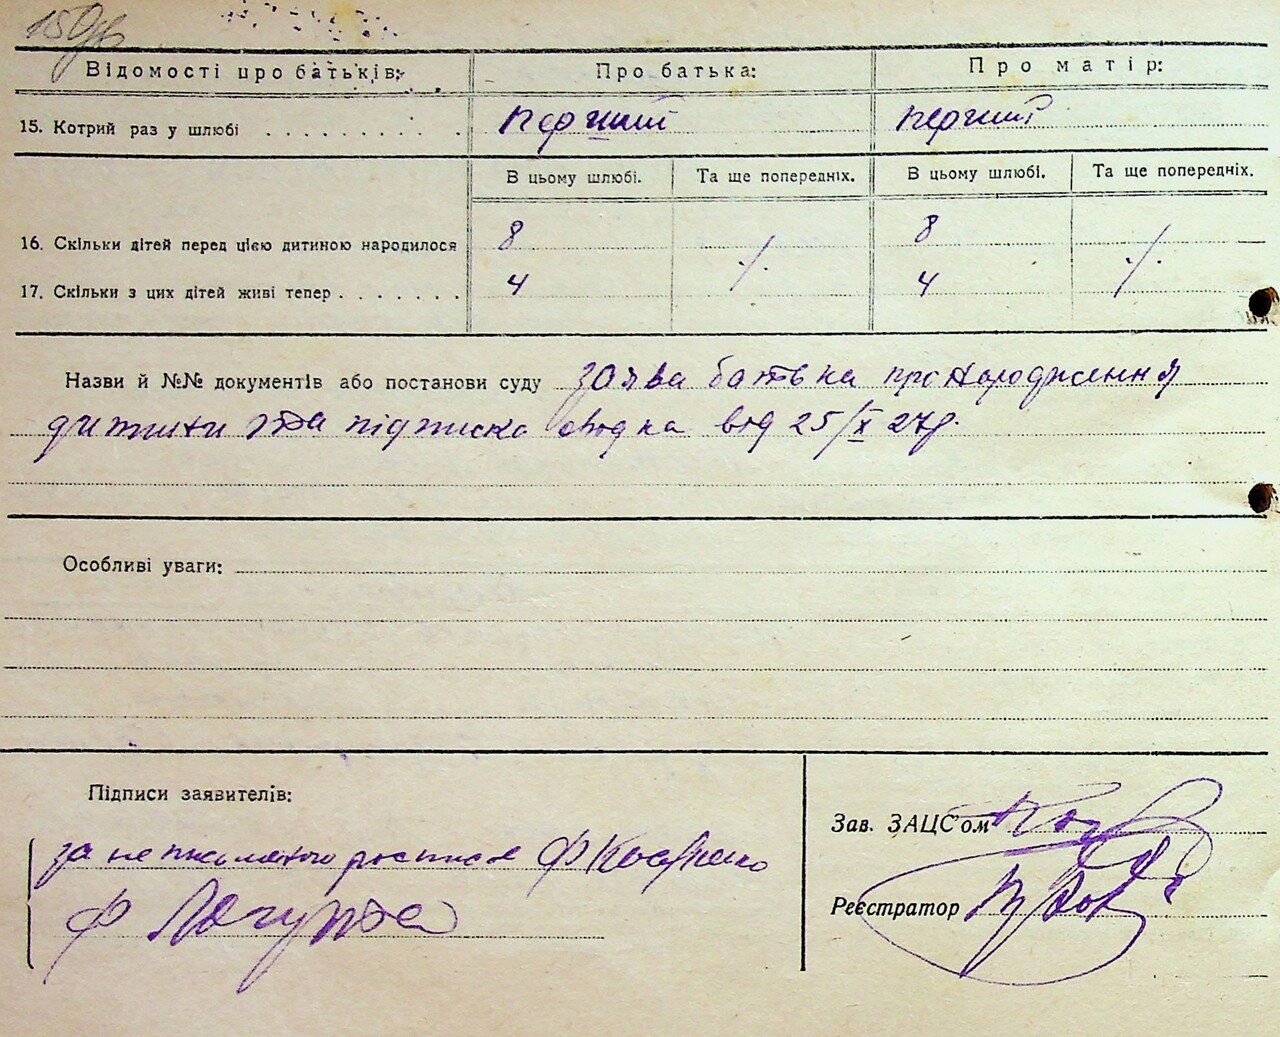 Відомості про батьків: Про батька: Про матір:
15. Котрий раз у шлюбі . . . . . . . . . . перший перший
В цьому шлюбі. Та ще попередніх. В цьому шлюбі. Та ще попередніх.
16. Скільки дітей перед цією дитиною народилося 8 8
17. Скільки з цих дітей живі тепер . . . . . . . 4 ·/· 4 ·/·
Назви й №№ документів або постанови суду заява батька про народження
дитини та підписка від 25/X 27р.
Особливі уваги:
Підписи заявителів:
Зав. ЗАЦС'ом
за неписьменого росписався Ф
Реєстратор
Ф